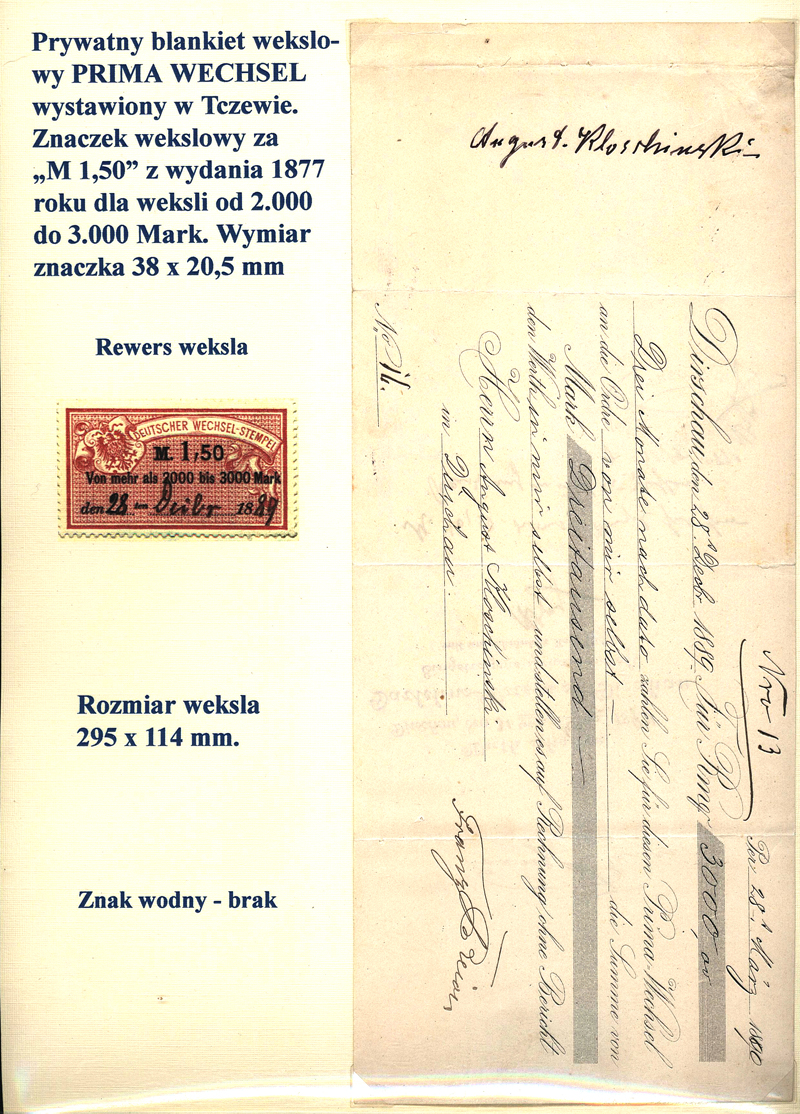 Prywatny blankiet wekslo-
wy PRIMA WECHSEL
wystawiony w Tczewie.
Znaczek wekslowy za
„M 1,50” z wydania 1877
roku dla weksli od 2.000
do 3.000 Mark. Wymiar
znaczka 38 x 20,5 mm
Rewers weksla
DEUTSCHER WECHSEL-STEMPEL
M. 1,50
Von mehr als 2000 bis 3000 Mark
den 28 1889
Rozmiar weksla
295 x 114 mm.
Znak wodny - brak
August. Kloschinski
Nro 13
Per 28t März 1890
Dirschau, den 28t Decb. 1889. Für Rmq 3000
Drei Monate nach dato zahlen Sie für diesen Prima-Wechsel
an die Ordre von mir selbst die Summe von
Mark Dreitausend
den Werth in mir selbst und stellen es auf Rechnung ohne Bericht
Herrn August Kloschinski
in Dirschau.
Franz
No.